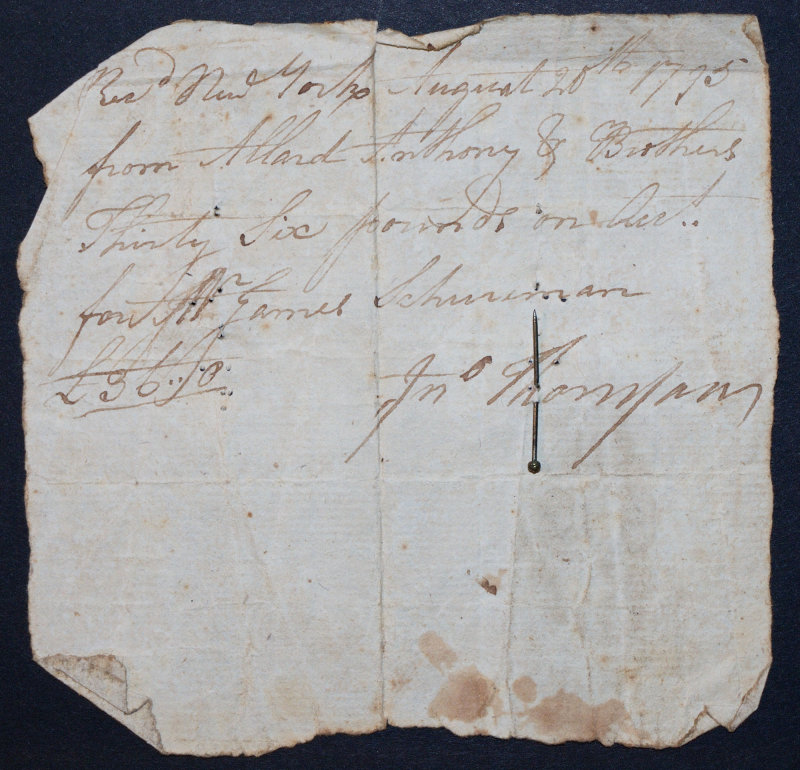 Rec.d New York August 20th 1795
from Allard Anthony & Brothers
Thirty Six pounds on Acct.
for Mr James Schureman
£36..0
Jno Thompson